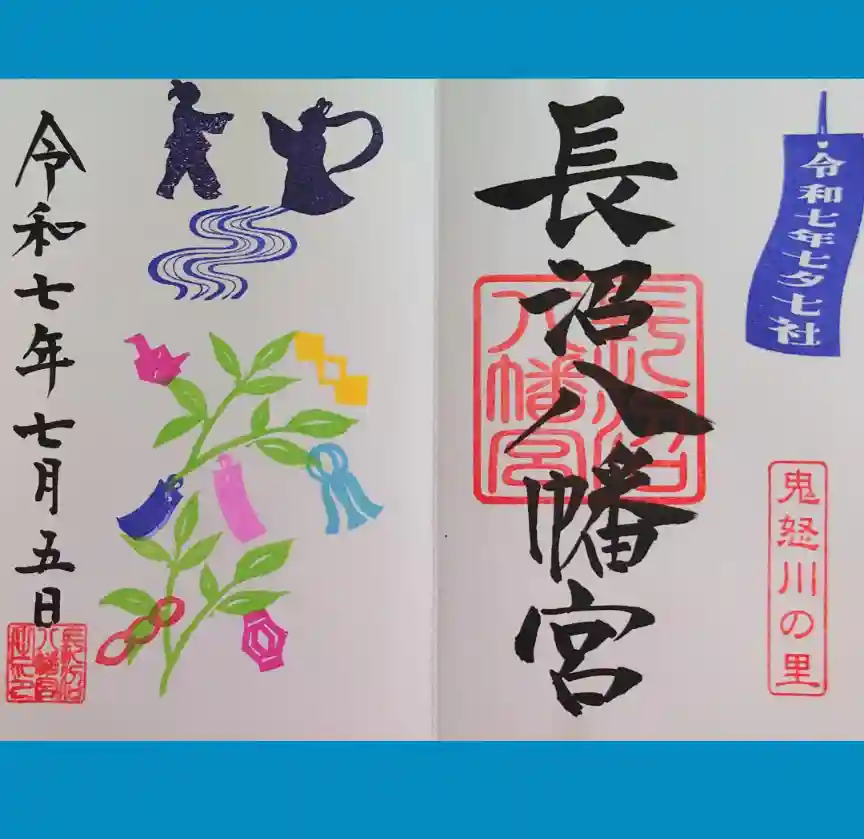 令和七年七夕七社
鬼怒川の里
長沼八幡宮
長沼
八幡宮
令和七年七月五日
長沼
八幡宮